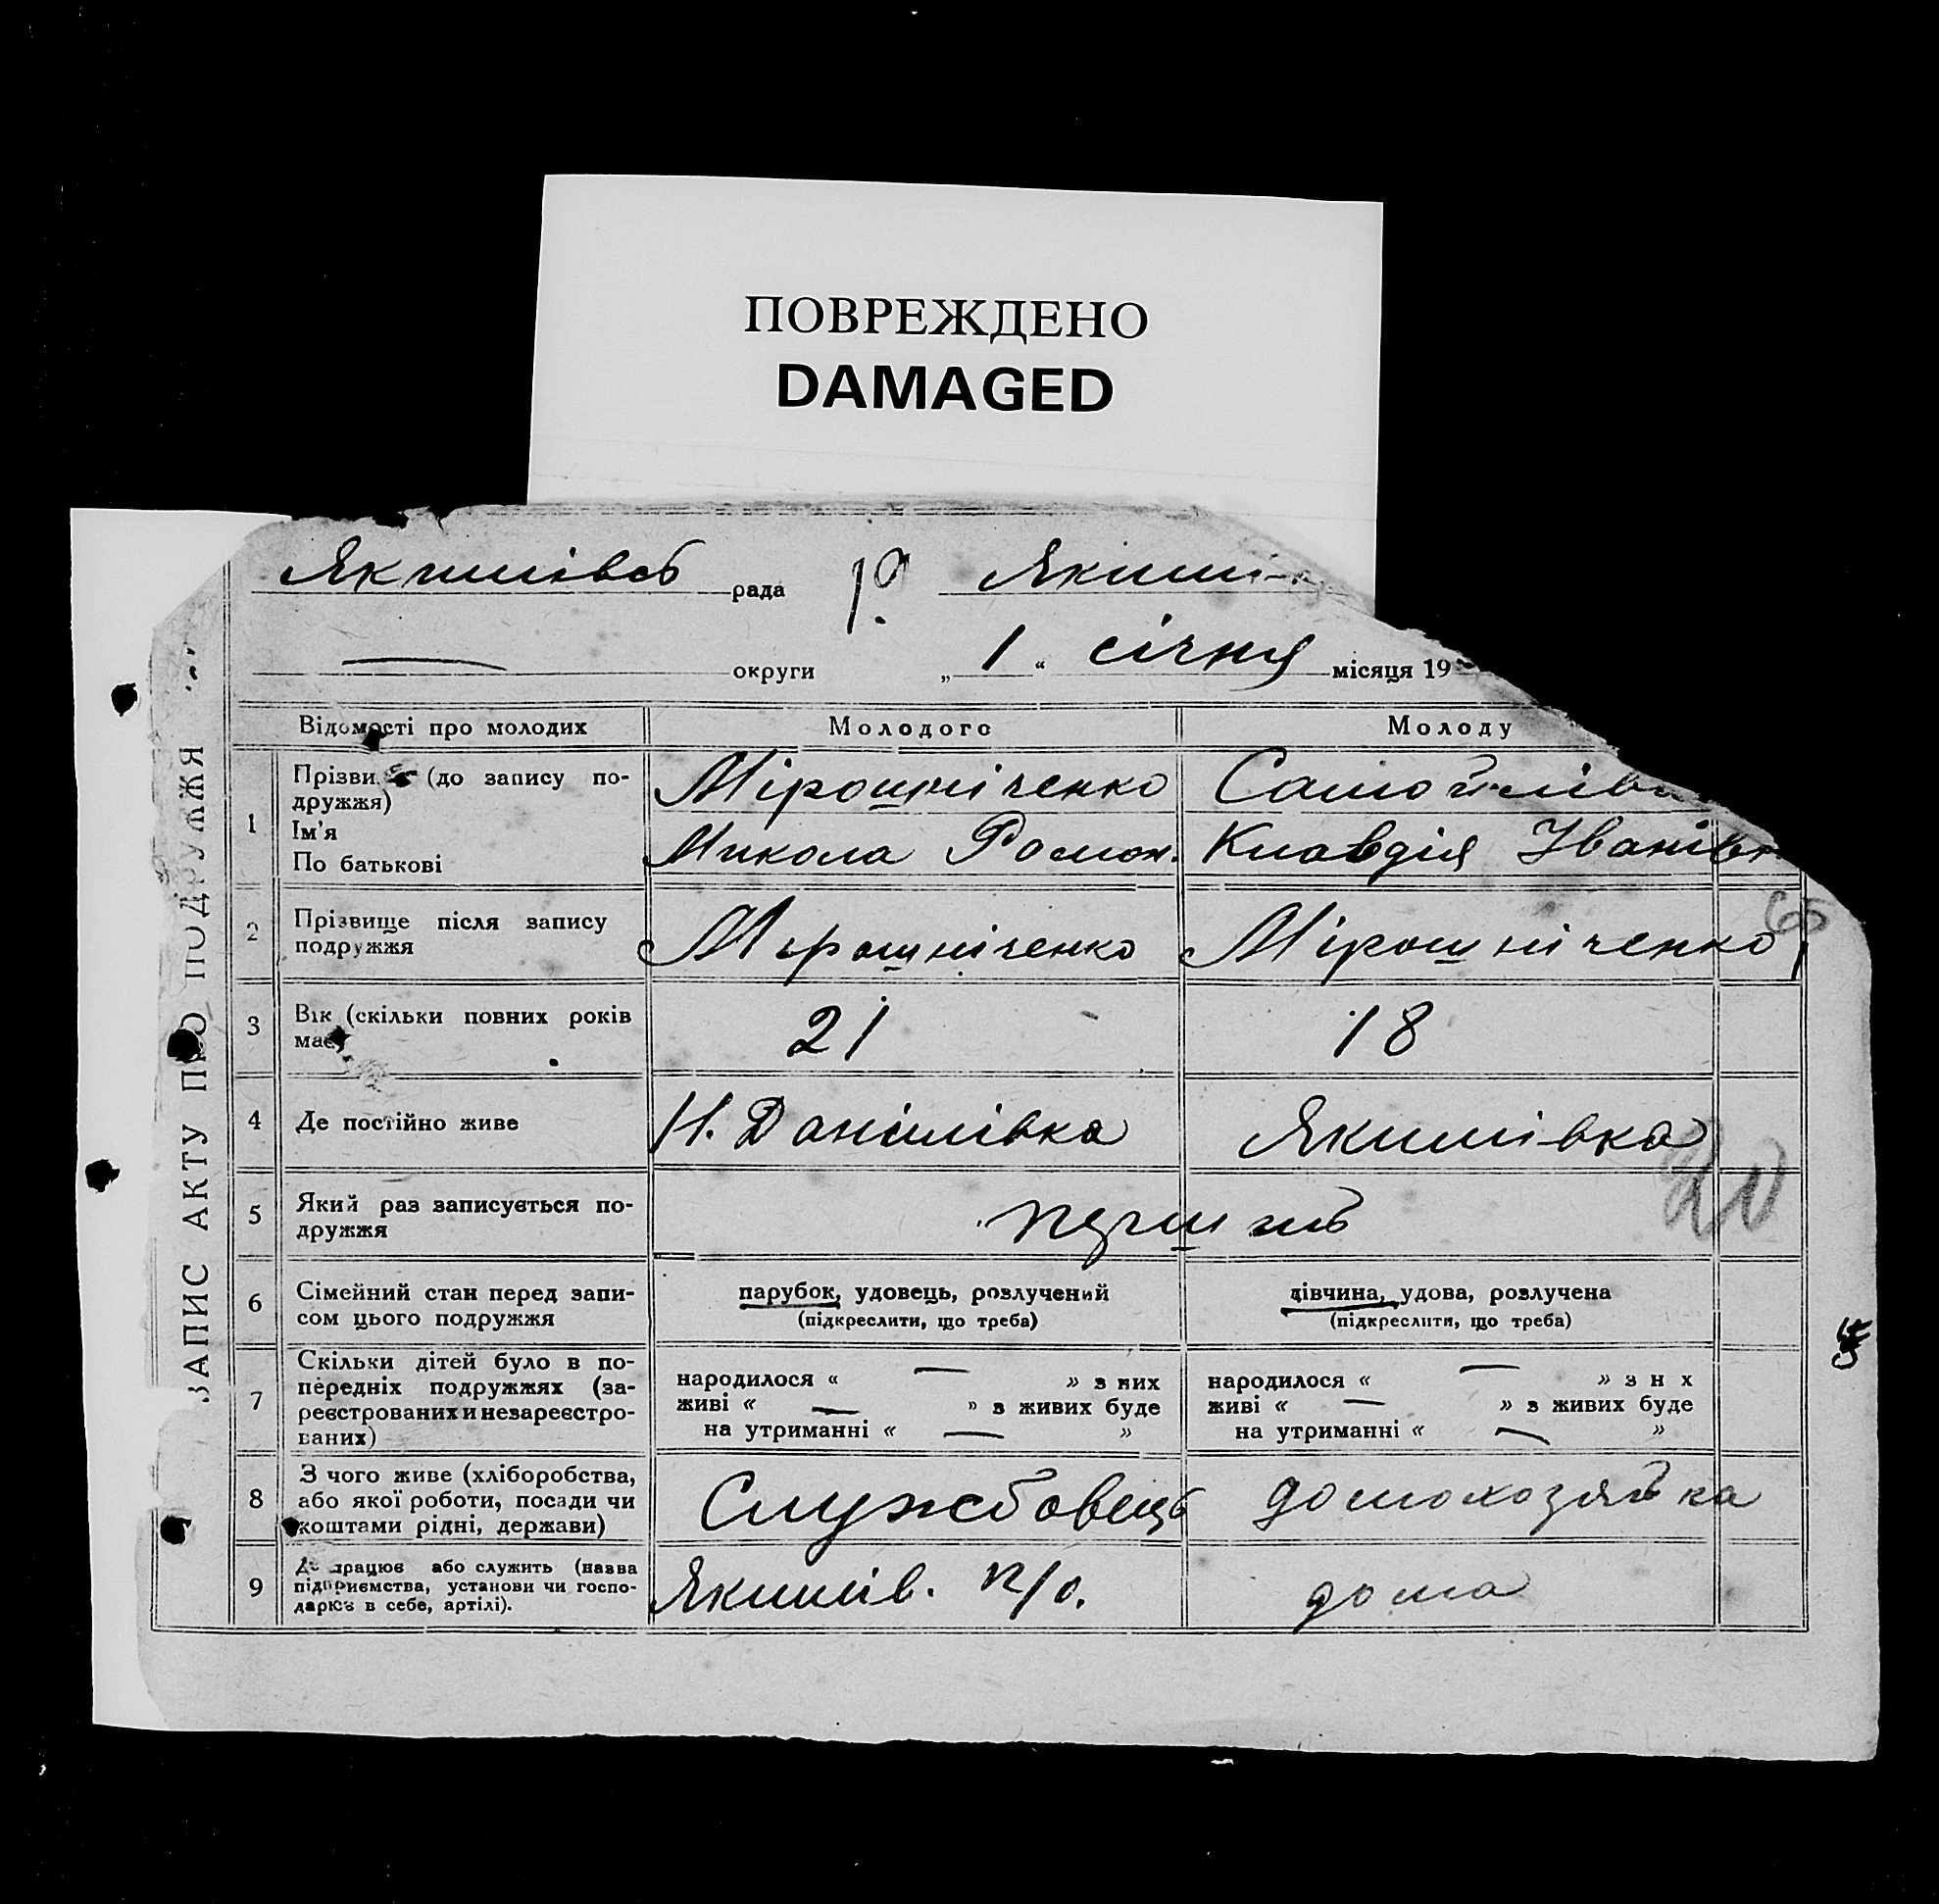 ПОВРЕЖДЕНО
DAMAGED
рада
округи „ 1 “ січня місяця 19
ЗАПИС АКТУ ПРО ПОДРУЖЖЯ
Відомості про молодих Молодого Молоду
1 (до запису по-
дружжя) Мірошніченко
Ім’я
По батькові Микола Роман. Клавдія Іванівн
2 Прізвище після запису
подружжя Мірошніченко Мірошніченко
65
3 Вік (скільки повних років
має) 21 18
4 Де постійно живе Н. Данілівка Якимівка
20
5 Який раз записується по-
дружжя
6 Сімейний стан перед запи-
сом цього подружжя парубок, удовець, розлучений дівчина, удова, розлучена
(підкреслити, що треба) (підкреслити, що треба)
7 Скільки дітей було в по-
передніх подружжях (за-
реєстрованих и незареєстро-
ваних)
народилося « — » з них народилося « — » з н х
живі « — » з живих буде живі « — » з живих буде
на утриманні « — » на утриманні « — »
8 З чого живе (хліборобства,
або якої роботи, посади чи
коштами рідні, держави) Службовець домохозяйка
9 Де працює або служить (назва
підприємства, установи чи госпо-
дарює в себе, артілі). Якимів. п/о. дома